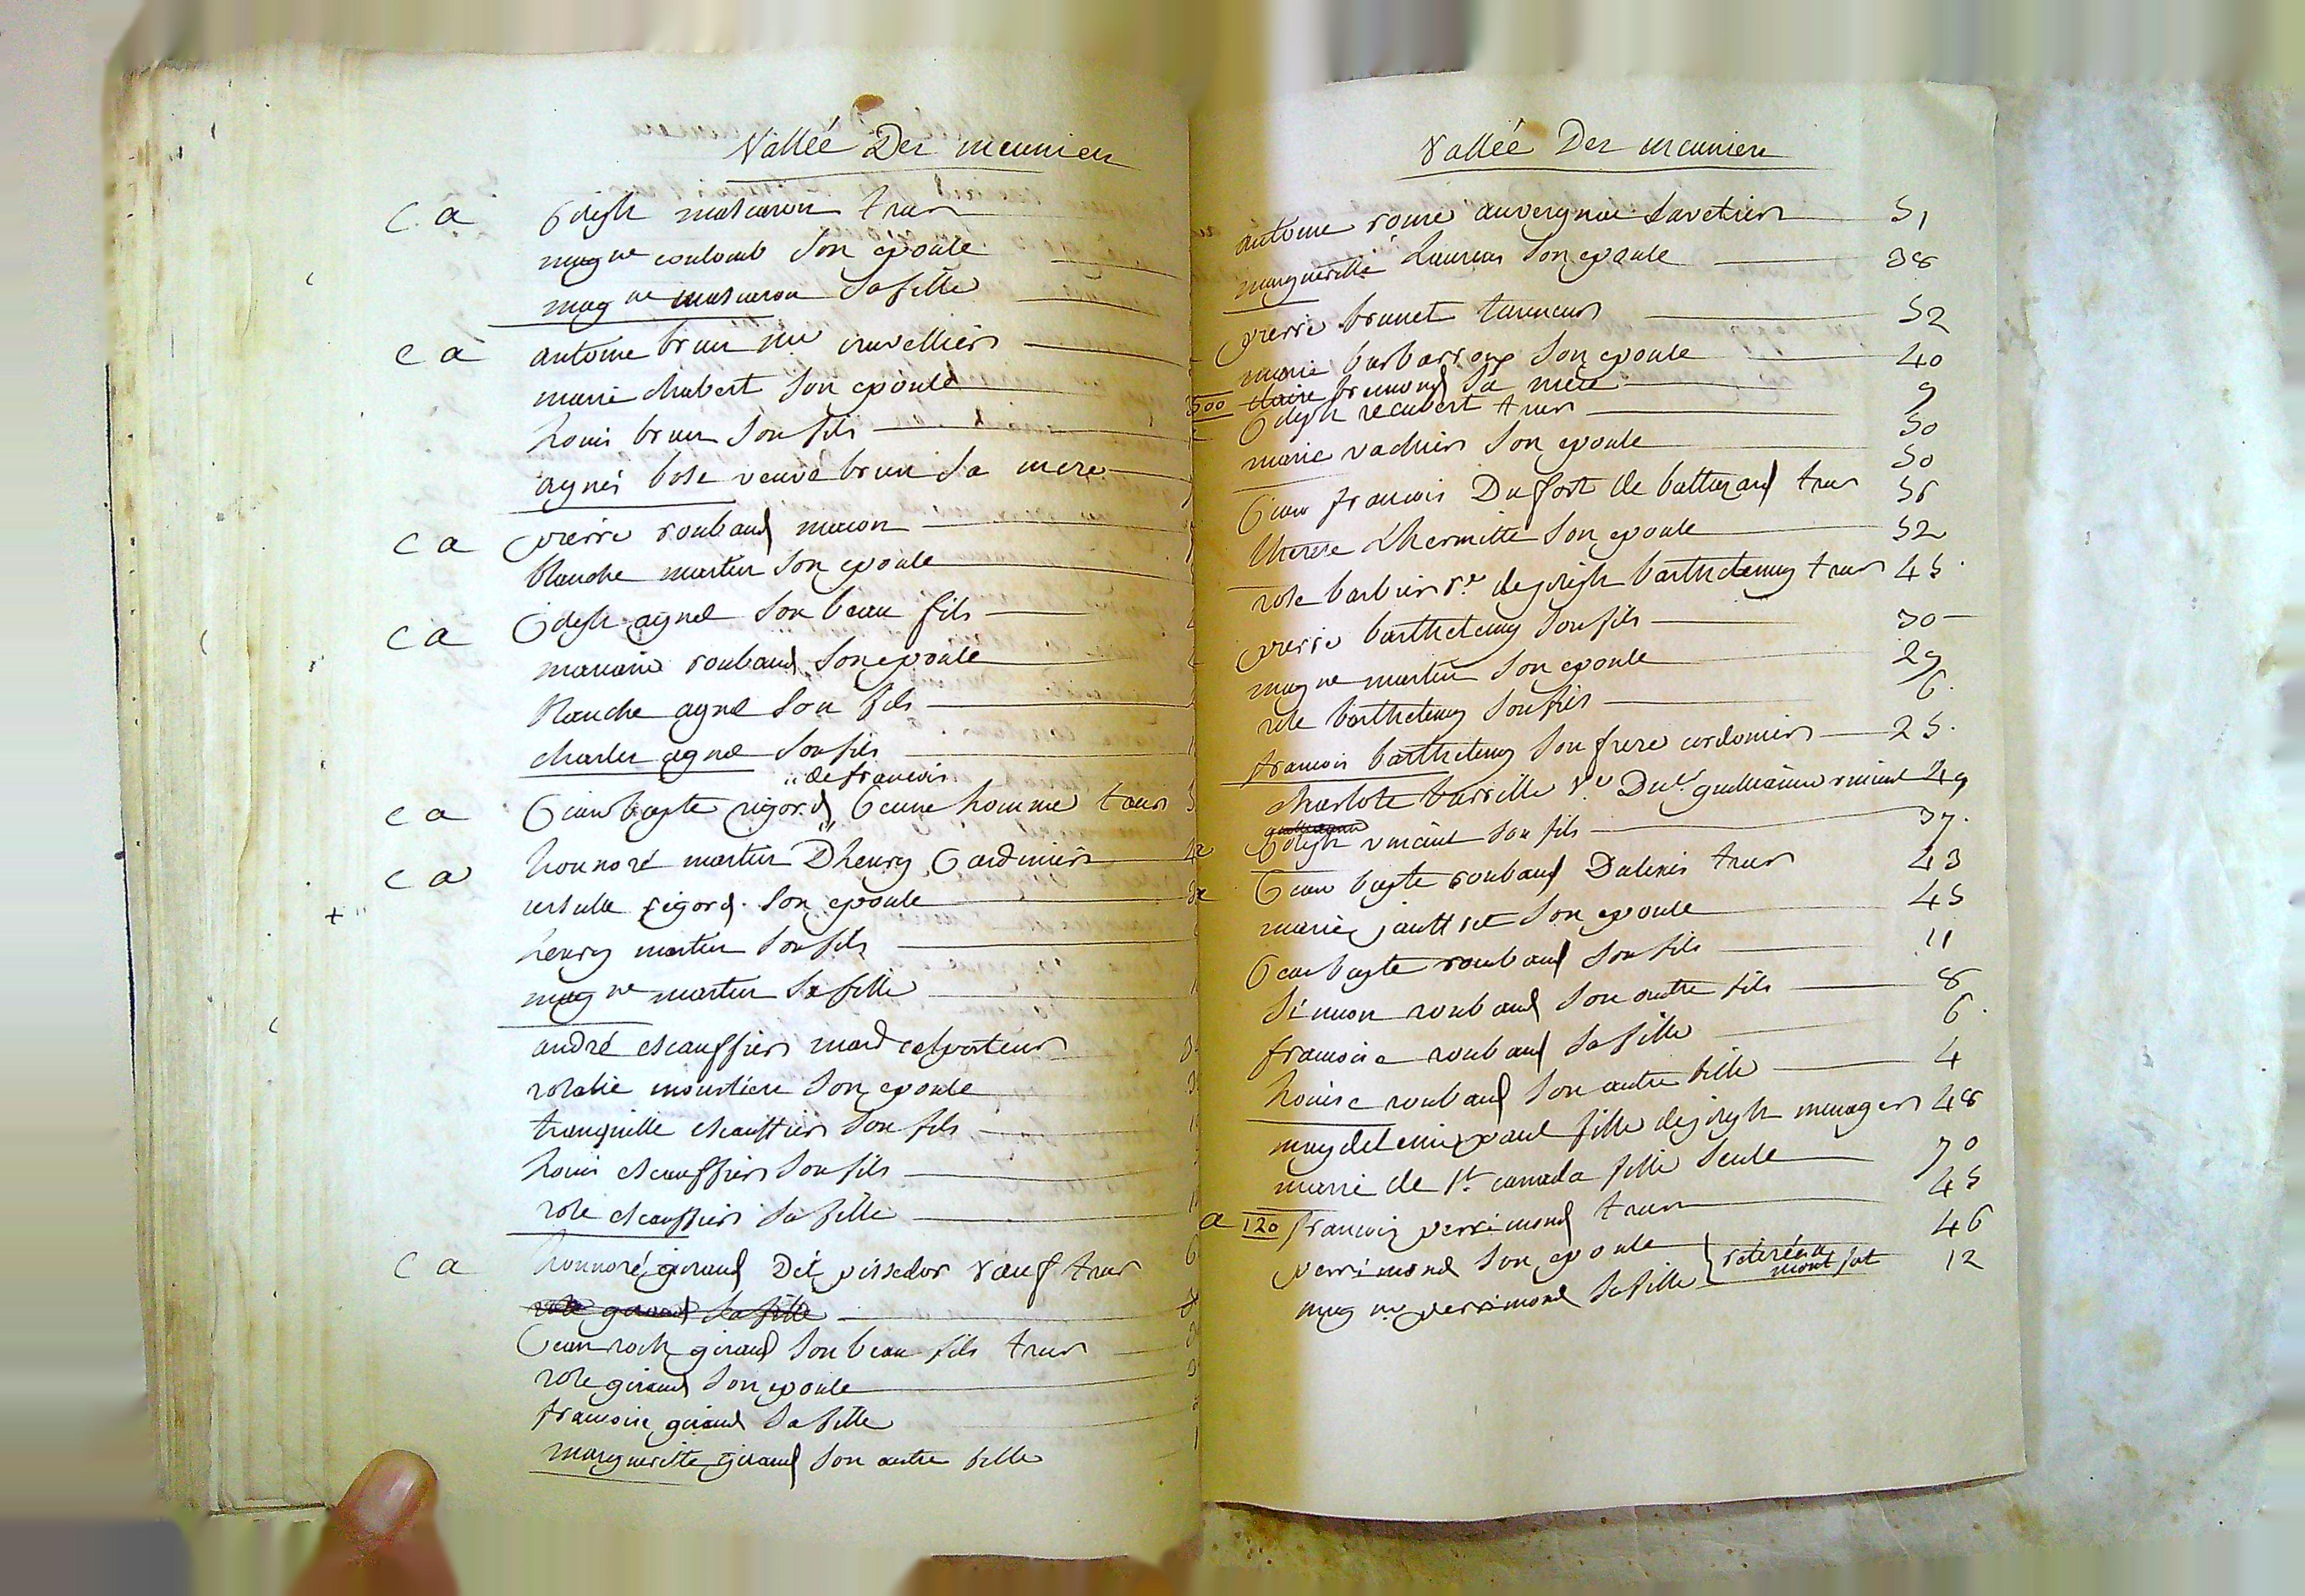 Vallée Des meuniers
c. a joseph mascaron trav.r
mag.ne coulomb son epouse
mag.ne mascaron sa fille
c a antoine brun cuvellier
marie chabert son epouse
Louis brun son fils
agnés bose veuve brun sa mere
c a pierre roubaud macon
blanche martin son epouse
c a joseph agnel son beau fils
roubaud son epouse
blanche agnel son fils
charles agnel son fils
de francois
c a jean bapte rigord jeune homme trav.r
c a honnoré martin Dhenry jardinier
ursulle rigord son epouse
+ henry martin son fils
mag.ne martin sa fille
andré escauffier mard colporteur
rosalie moustiere son epouse
tranquille escauffier son fils
Louis escauffier son fils
rose escauffier sa fille
c a honnoré giraud Dit pissedor veuf trav.r
rose giraud sa fille
jean roch giraud son beau fils trav.r
rose giraud son epouse
francoise giraud sa fille
margueritte giraud son autre fille
Vallée Des meuniers
antoine roure auvergnac savetier 51
margueritte Laurens son epouse 38
pierre brunet tanneur 52
marie barbarroux son epouse 40
500 claire bremond sa mere 9
joseph recubert trav.r 50
marie vachier son epouse 50
jean francois Dufort de battezard trav.r 56
therese Lhermitte son epouse 52
rose barbier v.e de joseph barthelemy trav.r 45
pierre barthelemy son fils 30
mag.ne martin son epouse 29
rose barthelemy son fils 6.
francois barthelemy son frere cordonier 25.
charlote barrille v.e Du guilleaume vincent 49
joseph vincent son fils 37.
jean bapte roubaud Dalexis trav.r 43
marie jauffret son epouse 45
jean bapte roubaud son fils 11
simon roubaud son autre fils 8
francoise roubaud sa fille 6.
Louise roubaud son autre fille 4
magdeleine paul fille de joseph menager 48
marie de st. canada fille seule 70
a 120 francois perrimond trav.r 45
perrimond son epouse 46
mag.ne perrimond sa fille } retirée a montfort 12